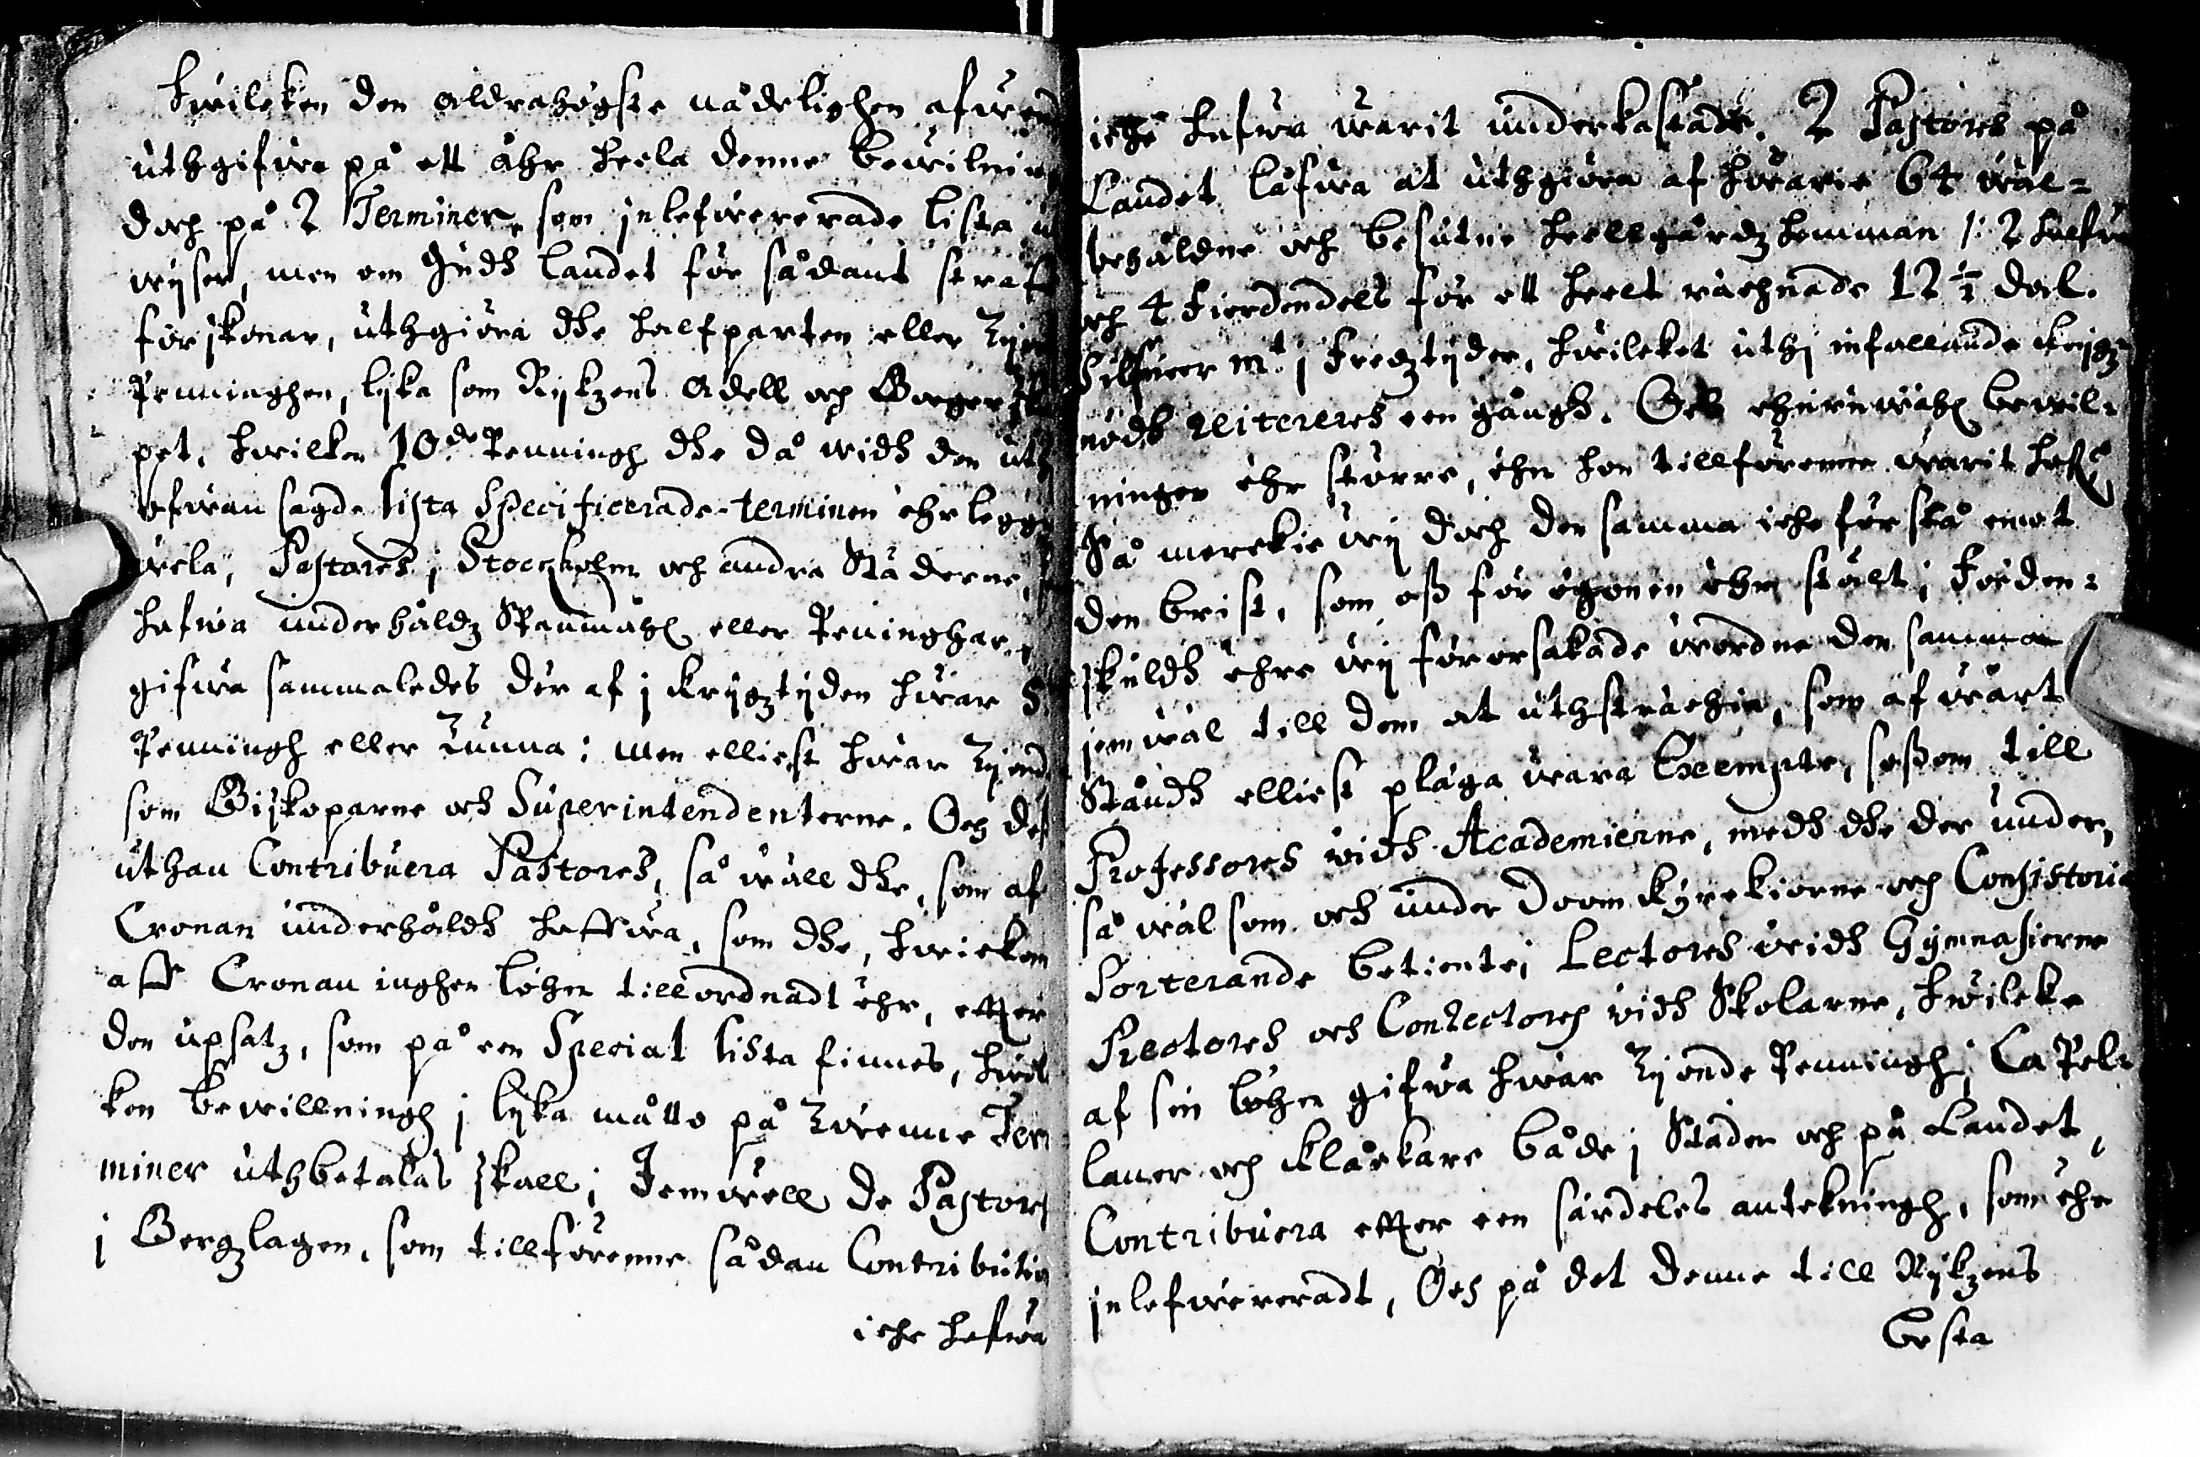 hwileken den aldrahögste nådelighen afwend
uthgifwa på ett åhr heela denne bewilnin
doch på 2 Terminer, som jnlefwererade lista u
wyser, men om Gudh landet för sådant straff
förskonar, uthgiöra dhe halfparten eller Tyen
Penninghen, lyka som Rykzens Adell och Borgerska
pet, hwilken 10de Penningh dhe då widh den uth
ofwan sagde lista Specificerade terminen ehrlegg
wela, Pastores j Stockholm och andra Städerne,
hafwa underhåldz Spanmåhl eller Peninghar,
gifwa sammaledes der af j krygztyden hwar 5
Penningh eller Tunna; men elliest hwar Tyend
som Biskoparne och Superintendenterne. Och des
uthan Contribuera Pastores, så wäll dhe, som af
Cronan underhåldh haffwa, som dhe, hwicken
aff Cronan inghen löhn tillordnadt ehr, effter
den upsatz, som på een Special lista finnes, hwil
ken bewillningh j lyka måtto på Twenne Ter
miner uthbetalas skall; Jemwell de Pastores
j Bergzlagen, som tillförenne sådan Contribution
iche hafwa
iche hafwa warit underkastade. 2 Pastores på
Landet låfwa at uthgiöra af hwarie 64 wäl=
behåldne och besutne heellgårdz hemman /: 2 halfwe
och 4 Fierdendels för ett heelt rächnade 12 ½ dal.
Silfwer mt j Fredztyder, hwileket uthj infallande krygz
nödh reitereres een gångh. Och ehuruwähl bewil=
ningen ehr större, ehn hon tillförenne warit hafr
Så merckie wy doch den samma iche förslå emot
den brist, som oss för ögonen ehr stält; Förden=
skuldh ehre wy förorsakade wordne den samma
jemwäl till dem at uthsträchia, som af wårt
Ståndh elliest pläga wara Exempte, såsom till
Professores widh Academierne, medh dhe der under,
så wäl som och under Doom kyrckiorne och Consistoria
Sorterande betiente; Lectores widh Gymnasierne
Rectores och ConRectores widh Skolarne, hwileke
af sin löhn gifwa hwar Tyende Penningh; CaPel=
laner och klåckare både j Städer och på Landet,
Contribuera effter een särdeles antekningh, som ehr
jnlefwereradt, Och på det denne till Rykzens
besta